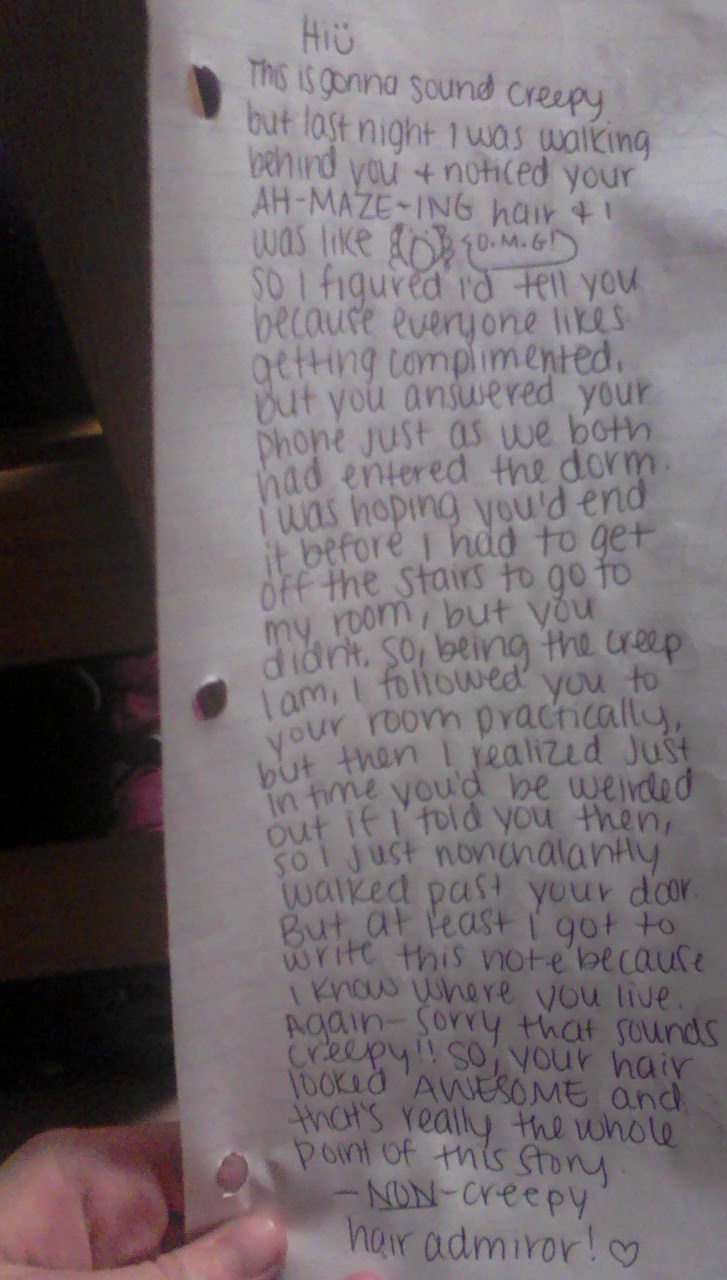 Hi ü
This is gonna sound creepy
but last night I was walking
behind you + noticed your
AH-MAZE-ING hair + I
was like O.M.G!
so I figured i'd tell you
because everyone likes
getting complimented.
but you answered your
phone just as we both
had entered the dorm.
I was hoping you'd end
it before I had to get
off the stairs to go to
my room, but you
didn't. so, being the creep
I am, I followed you to
your room practically,
but then I realized just
in time you'd be weirded
out if I told you then,
so I just nonchalantly
walked past your door.
But at least I got to
write this note because
I know where you live.
Again- sorry that sounds
creepy!! so, your hair
looked AWESOME and
that's really the whole
point of this story
-NON-creepy
hair admiror! ♡